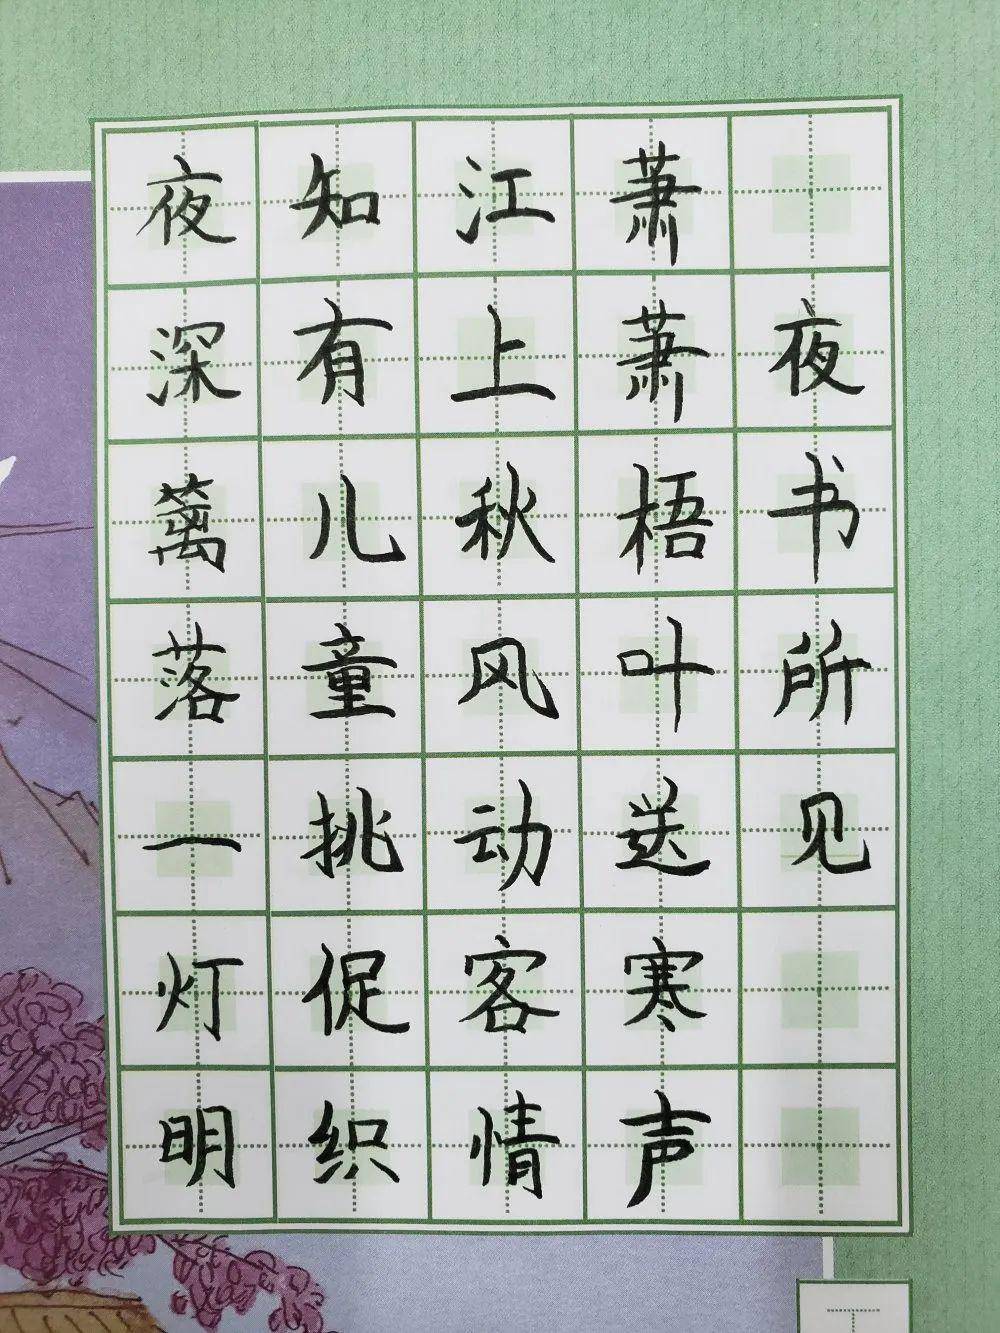 夜书所见
萧萧梧叶送寒声
江上秋风动客情
知有儿童挑促织
夜深篱落一灯明